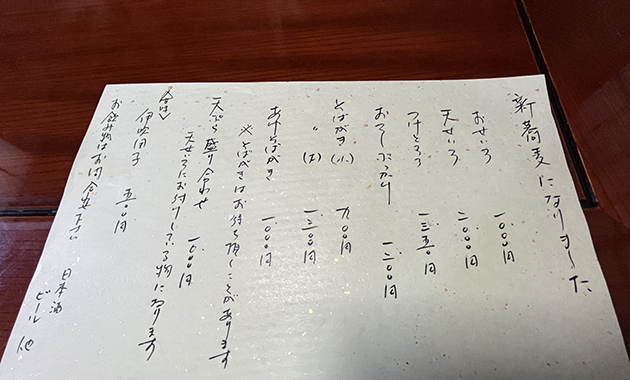 新蕎麦になりました
おせいろ 一〇〇〇円
天せいろ 二〇〇〇円
つけとろろ 一三五〇円
おろしぶっかけ 一二〇〇円
そばがき(小) 九〇〇円
〃(大) 一三〇〇円
あげそばがき 一〇〇〇円
※そばがきはお待ち頂くことがあります
天ぷら盛り合わせ 一〇〇〇円
天せいろにお付けしている物になります
伊吹団子 五〇〇円
お飲み物はお問合せ下さい
日本酒
ビール 他